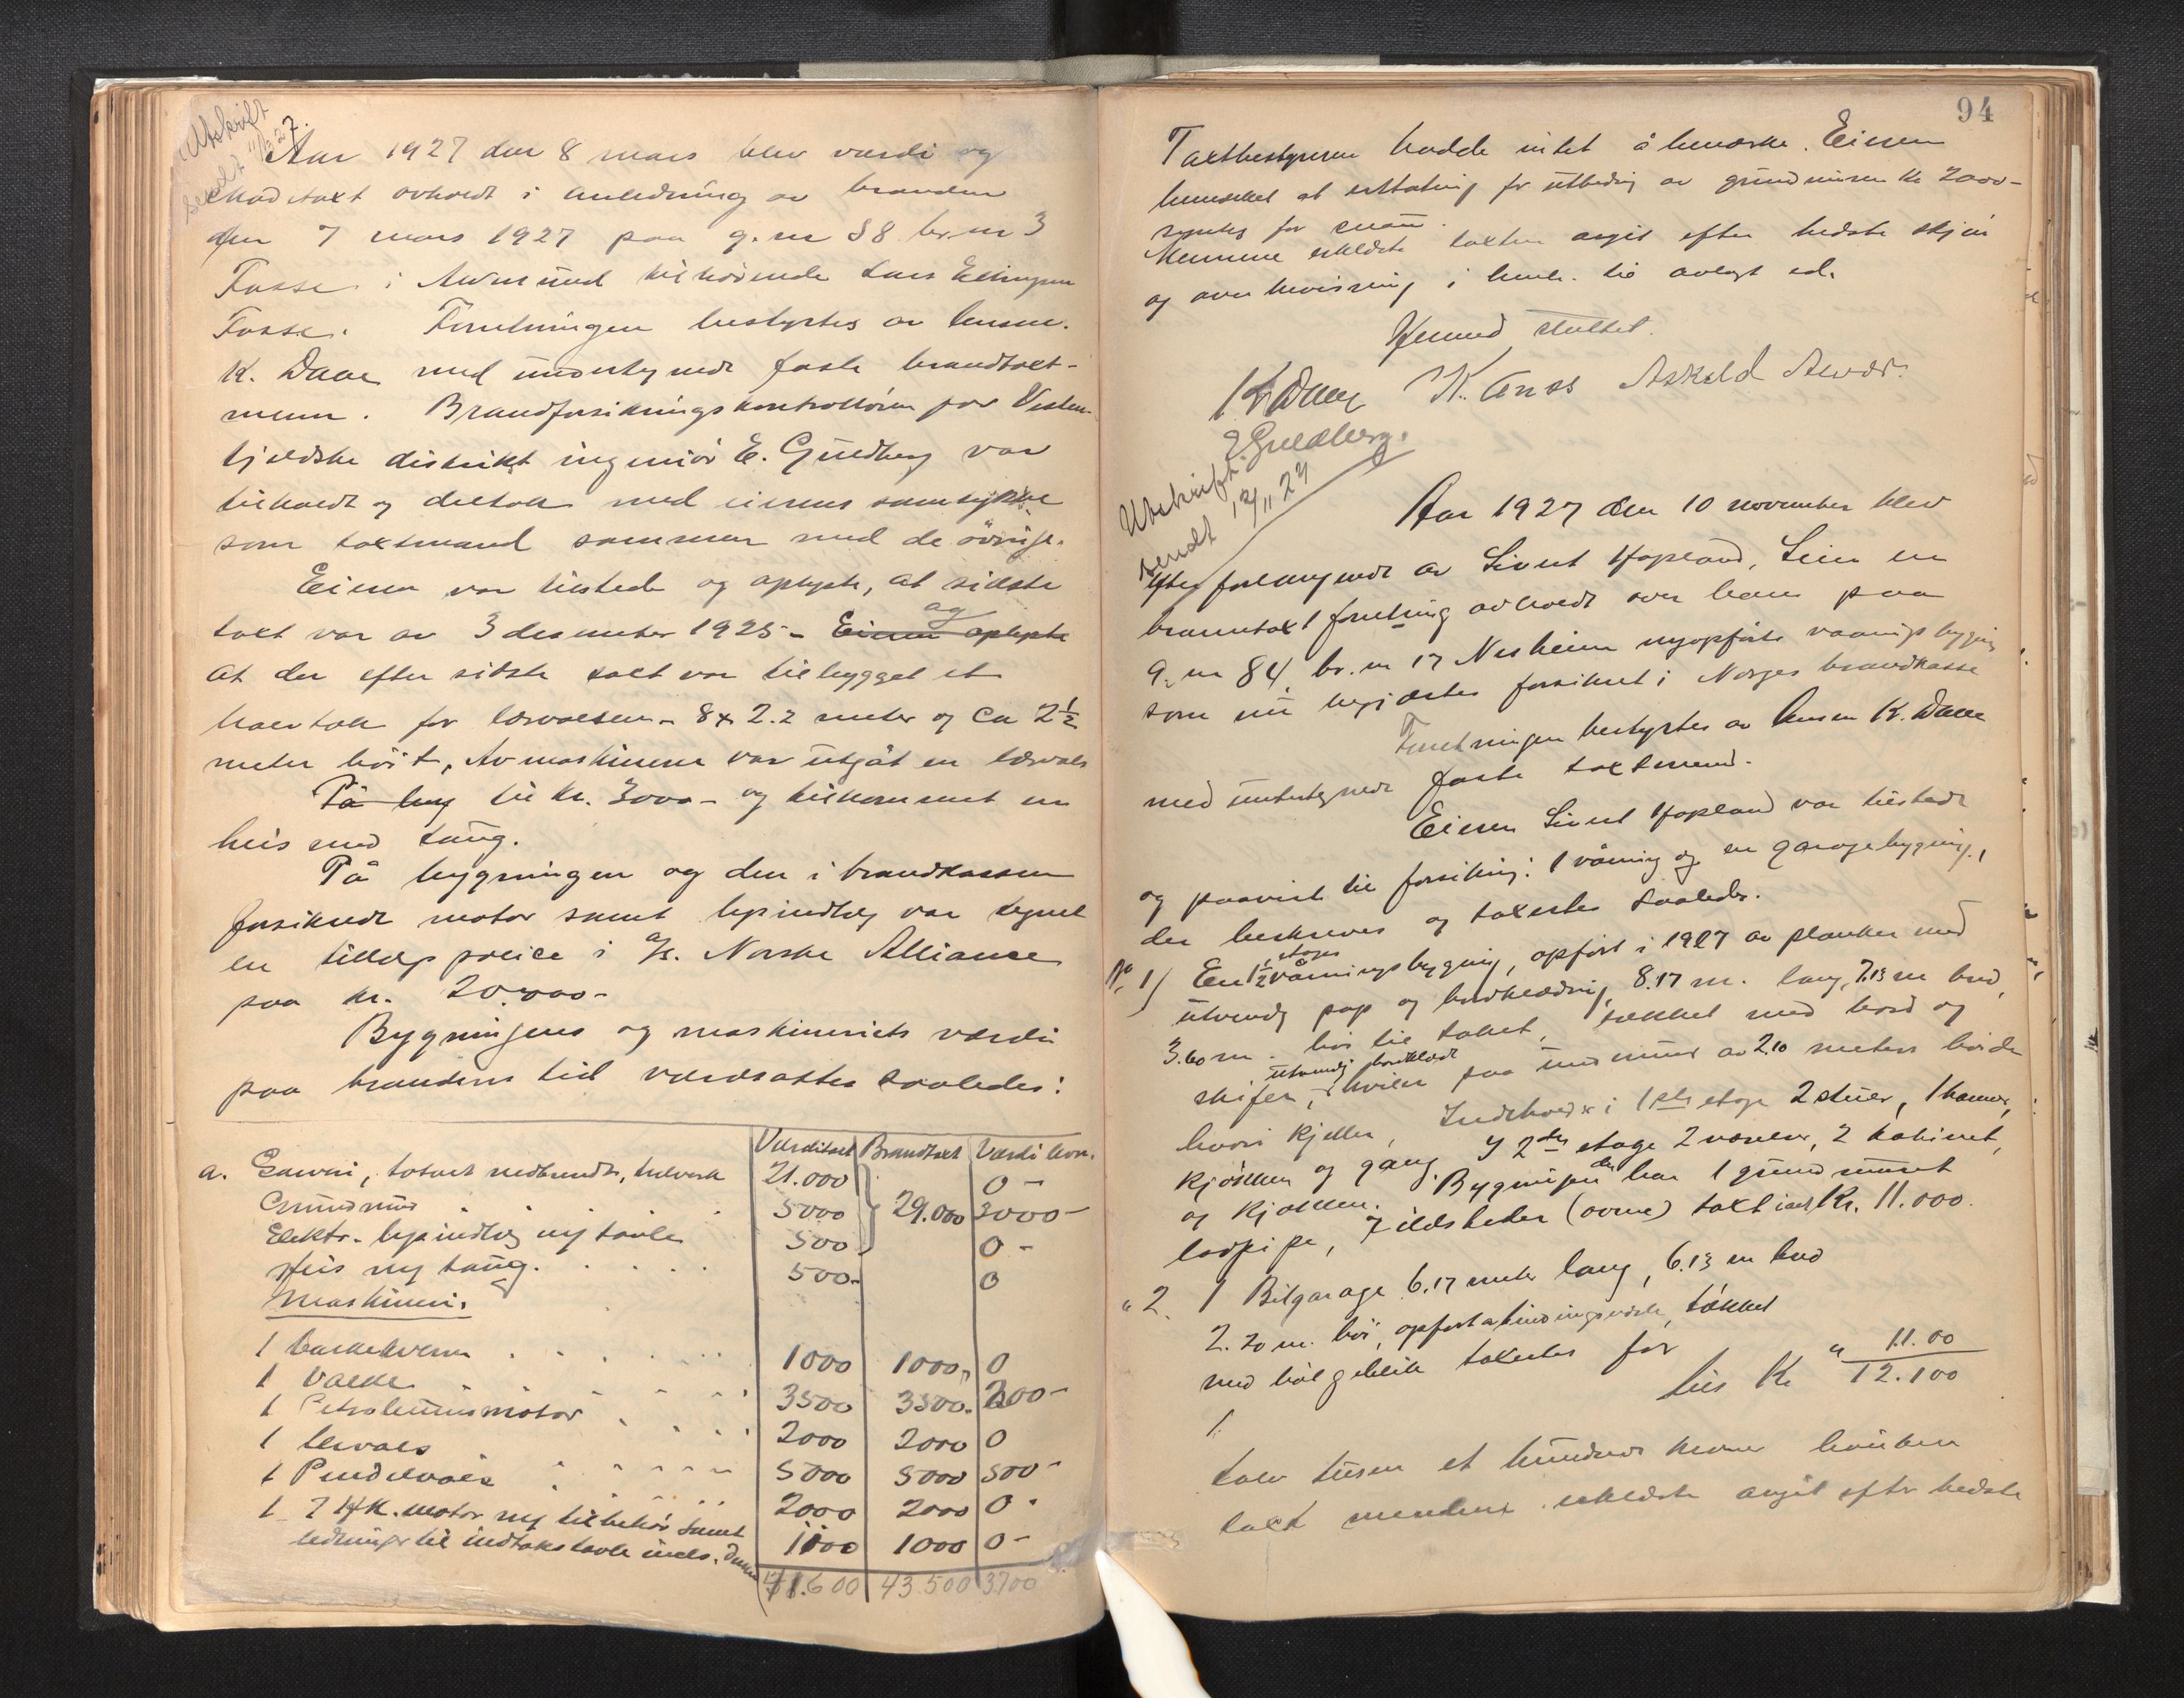 Utskrift
sendt 11/3 27.
Aar 1927 den 8 mars blev værdi og
skadetakst avholdt i anledning av branden
den 7 mars 1927 paa g.nr 88 br.nr 3
Fosse i Alversund tilhørende Lars Ellingsen
Fosse. Forretningen bestyrtes av lensm.
K. Daae med undertegnede faste brandtakst-
menn. Brandforsikringskontrolløren for Vesten-
fjeldske distrikt ingeniør E. Guldberg var
tilkaldt og deltok med eierens samtykke
som takstmand sammen med de øvrige.
Eieren var tilstede og oplyste, at sidste
takst var av 3 desember 1925 - Eieren oplyste og
at der efter sidste takst var tilbygget et
halvtak for lervalsen - 8 x 2.2 meter og ca 2½
meter høit, Av maskinene var utgåt en lervals
På byg til kr. 3000 - og tilkommet en
heis med taug.
På bygningen og den i brandkassen
forsikrede motor samt lysindlæg var tegnet
en tillægspolice i A/S. Norske Alliance
paa kr. 20.000 -
Bygningens og maskineriets værdi
paa brandens tid værdsattes saaledes:
Værditakst Brandtakst Værdi levn.
a. Garveri, totalt nedbrændt, treverk 21.000 0 -
Grundmur 5000 29.000 3000 -
Elektr. lysindlæg m/ tavle 500 0 -
Heis m/ taug. 500 - 0
Maskineri.
1 barkekvern 1000 1000 0
1 Valke 3500 3500 - 200 -
1 Petroleumsmotor 2000 2000 0
1 lervals 5000 5000 500 -
1 Pendelvals 2000 2000 0 -
1 7 HK. motor m/ tilbehør samt
ledninger til indtakstavle 1100 1000 0 -
41.600 43.500 3700
94
Takstbestyreren hadde intet å bemerke. Eieren
bemerket at erstatning for utbedring av grundmuren kr 2000 -
syntes for snau.
Mennene erklærte taksten avgit efter bedste skjøn
og overbevisning i henh. til avlagt ed.
Hermed sluttet.
K Daae K. Anos Askeld Alvær.
E. Guldberg.
Utskrift
sendt 12/11 27
Aar 1927 den 10 november blev
efter forlangende av Sivert Hopland, Seim en
branntakstforretning avholdt over hans paa
g.nr 84 br.nr 17 Nesheim nyopførte vaaningsbygning
som nu begjæres forsikret i Norges brandkasse
Forretningen bestyrtes av lensm K. Daae
med undertegnede faste takstmend.
Eieren Sivert Hopland var tilstede
og paaviste til forsikring: 1 våning og en garagebygning,
der beskrives og takseres saaledes.
No 1) En 1½ etages våningsbygning, opført i 1927 av planker med
utvendig pap og bordklædning, 8.17 m. lang, 7.13 m bred,
3.60 m. høi til taket, tækket med bord og
skifer, utvendig bordklædt, hviler paa en mur av 2.10 meters høide
hvori kjeller, Indehold i 1ste etage 2 stuer, 1 kammer,
kjøkken og gang. I 2den etage 2 værelser, 2 kabinet,
og kjøkken. Bygningen der har 1 grundmuret
lodpipe, 7 ildsteder (ovne) takst ialt Kr. 11.000.
" 2. 1 Bilgarage 6.17 meter lang, 6.13 m bred
2.20 m. høi, opført av bindingsverk, tækket
med bølgeblik takseres for " 11.00
tils Kr 12.100
1.
tolv tusen et hundrede kroner hvilken
takst mendene erklærte avgit efter bedste